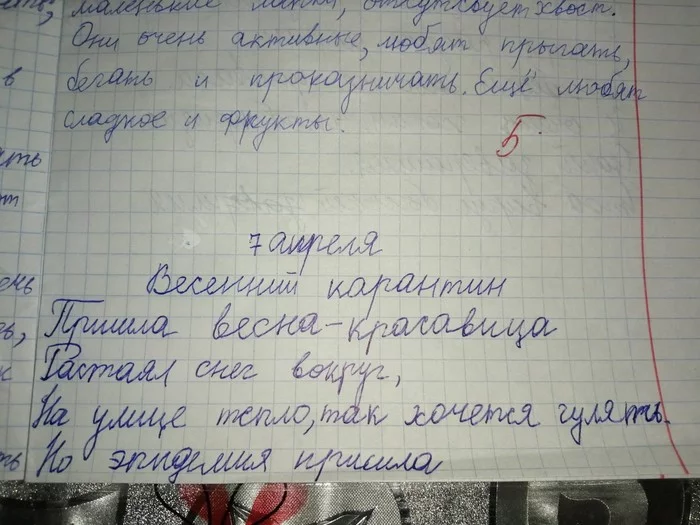 маленькие лапки, отсутсвует хвост.
Они очень активные, любят прыгать,
в бегать и проказничать. Ещё любят
сладкое и фрукты.
5
7 апреля
Весенний карантин
Пришла весна-красавица
Растаял снег вокруг,
На улице тепло, так хочется гулять.
Но эпидемия пришла